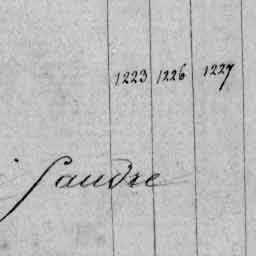 1223 1226 1227
Saudre